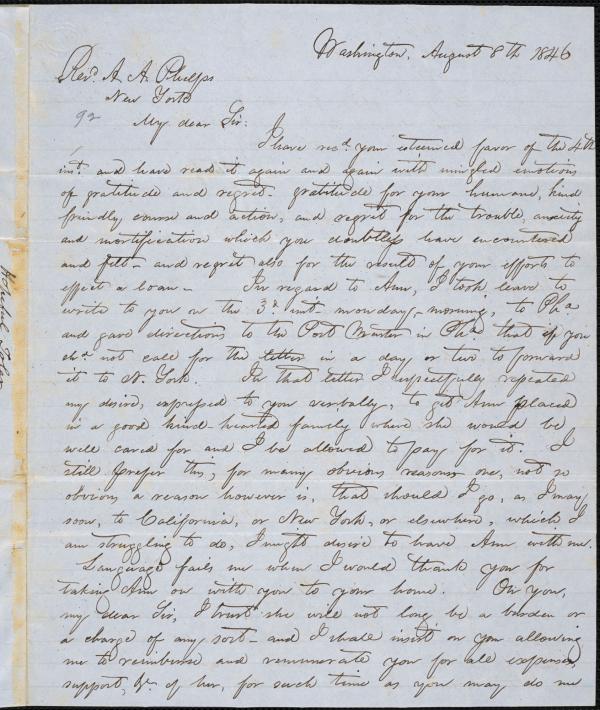 Washington, August 8th 1846
Revd. A. A. Phelps
New York
92
My dear Sir:
I have recd. your esteemed favor of the 4th
inst. and have read it again and again with mingled emotions
of gratitude and regret. gratitude for your humane, kind
friendly course and action, and regret for the trouble, anxiety
and mortification which you doubtless have encountered
and felt - and regret also for the result of your efforts to
effect a loan - In regard to Ann, I took leave to
write to you on the 3d inst. monday - morning, to Pha
and gave directions to the Post Master in Pha that if you
did not call for the letter in a day or two to forward
it to N. York. In that letter I respectfully repeated
my desire, expressed to you verbally, to get Ann placed
in a good kind hearted family where she would be
well cared for and I be allowed to pay for it. I
still prefer this, for many obvious reasons one, not so
obvious a reason however is, that should I go, as I may
soon, to California, or New York, or elsewhere, which I
am struggling to do, I might desire to have Ann with me.
Language fails me when I would thank you for
taking Ann on with you to your home. On you,
my dear Sir, I trust she will not long be a burden or
a charge of any sort - and I shall insist on you allowing
me to reimburse and remunerate you for all expenses,
support, &c. of her, for such time as you may do me